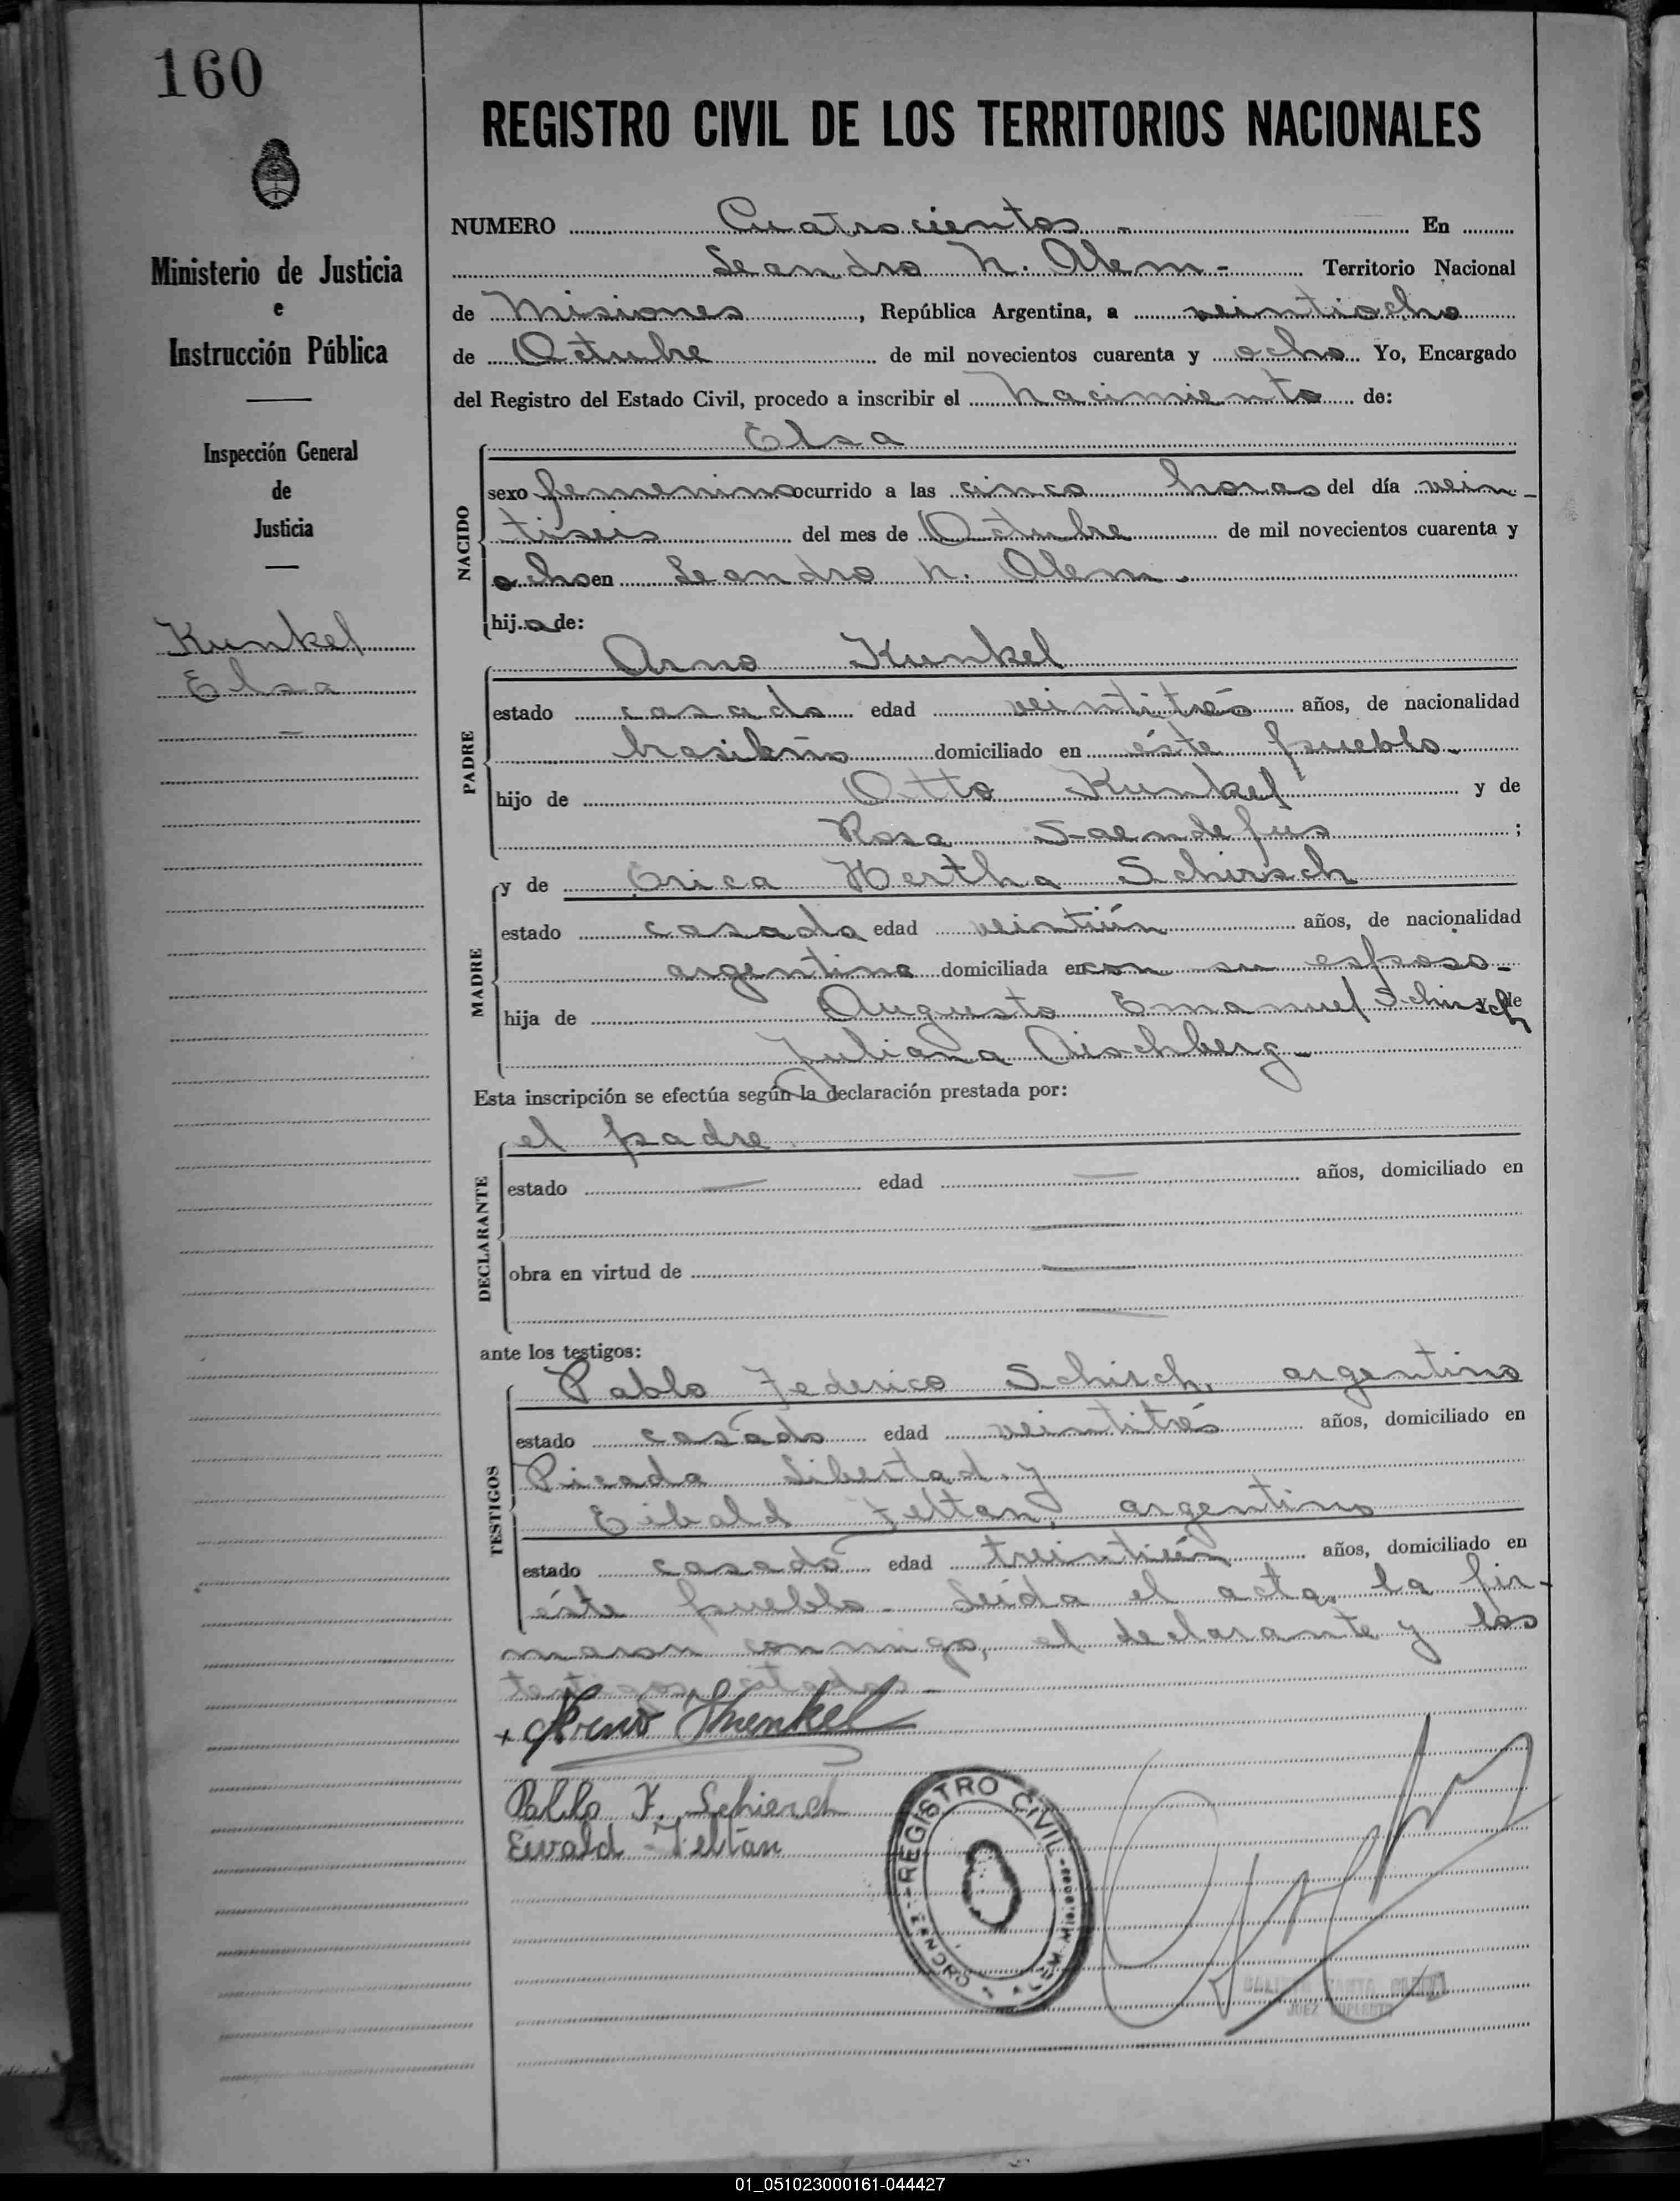 160
Ministerio de Justicia
e
Instrucción Pública
Inspección General
de
Justicia
Kunkel
Elsa
REGISTRO CIVIL DE LOS TERRITORIOS NACIONALES
NUMERO Cuatrocientos En
Leandro N. Alem - Territorio Nacional
de Misiones, República Argentina, a veintiocho
de Octubre de mil novecientos cuarenta y ocho Yo, Encargado
del Registro del Estado Civil, procedo a inscribir el Nacimiento de:
Elsa
NACIDO
sexo femenino ocurrido a las cinco horas del día vein-
tiseis del mes de Octubre de mil novecientos cuarenta y
ocho en Leandro N. Alem.
hija de:
PADRE
Arno Kunkel
estado casado edad veintitrés años, de nacionalidad
brasileño domiciliado en éste pueblo.
hijo de Otto Kunkel y de
Rosa Saendefus ;
MADRE
y de Erica Hertha Schirsch
estado casada edad veintiún años, de nacionalidad
argentina domiciliada en con su esposo-
hija de Augusto Emanuel Schirsch y de
Juliana Aischberg-
Esta inscripción se efectúa según la declaración prestada por:
DECLARANTE
el padre
estado edad años, domiciliado en
obra en virtud de
ante los testigos:
TESTIGOS
Pablo Federico Schirch, argentino
estado casado edad veintitrés años, domiciliado en
Picada Libertad y
Eibald Feltan, argentino
estado casado edad treintiún años, domiciliado en
éste pueblo - Leida el acta, la fir-
maron conmigo, el declarante y los
testigos citados -
+ Arno Kunkel
Pablo F. Schierch
Eivald Feltan
REGISTRO CIVIL
LEANDRO N. ALEM
JUEZ SUPLENTE
01_051023000161-044427